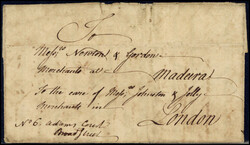 To
Messrs Newton & Gordon
Merchants at
Madeira
To the care of Messrs Johnston & Jolly
Merchants in
London
No 6. Adams Court
Broad Street